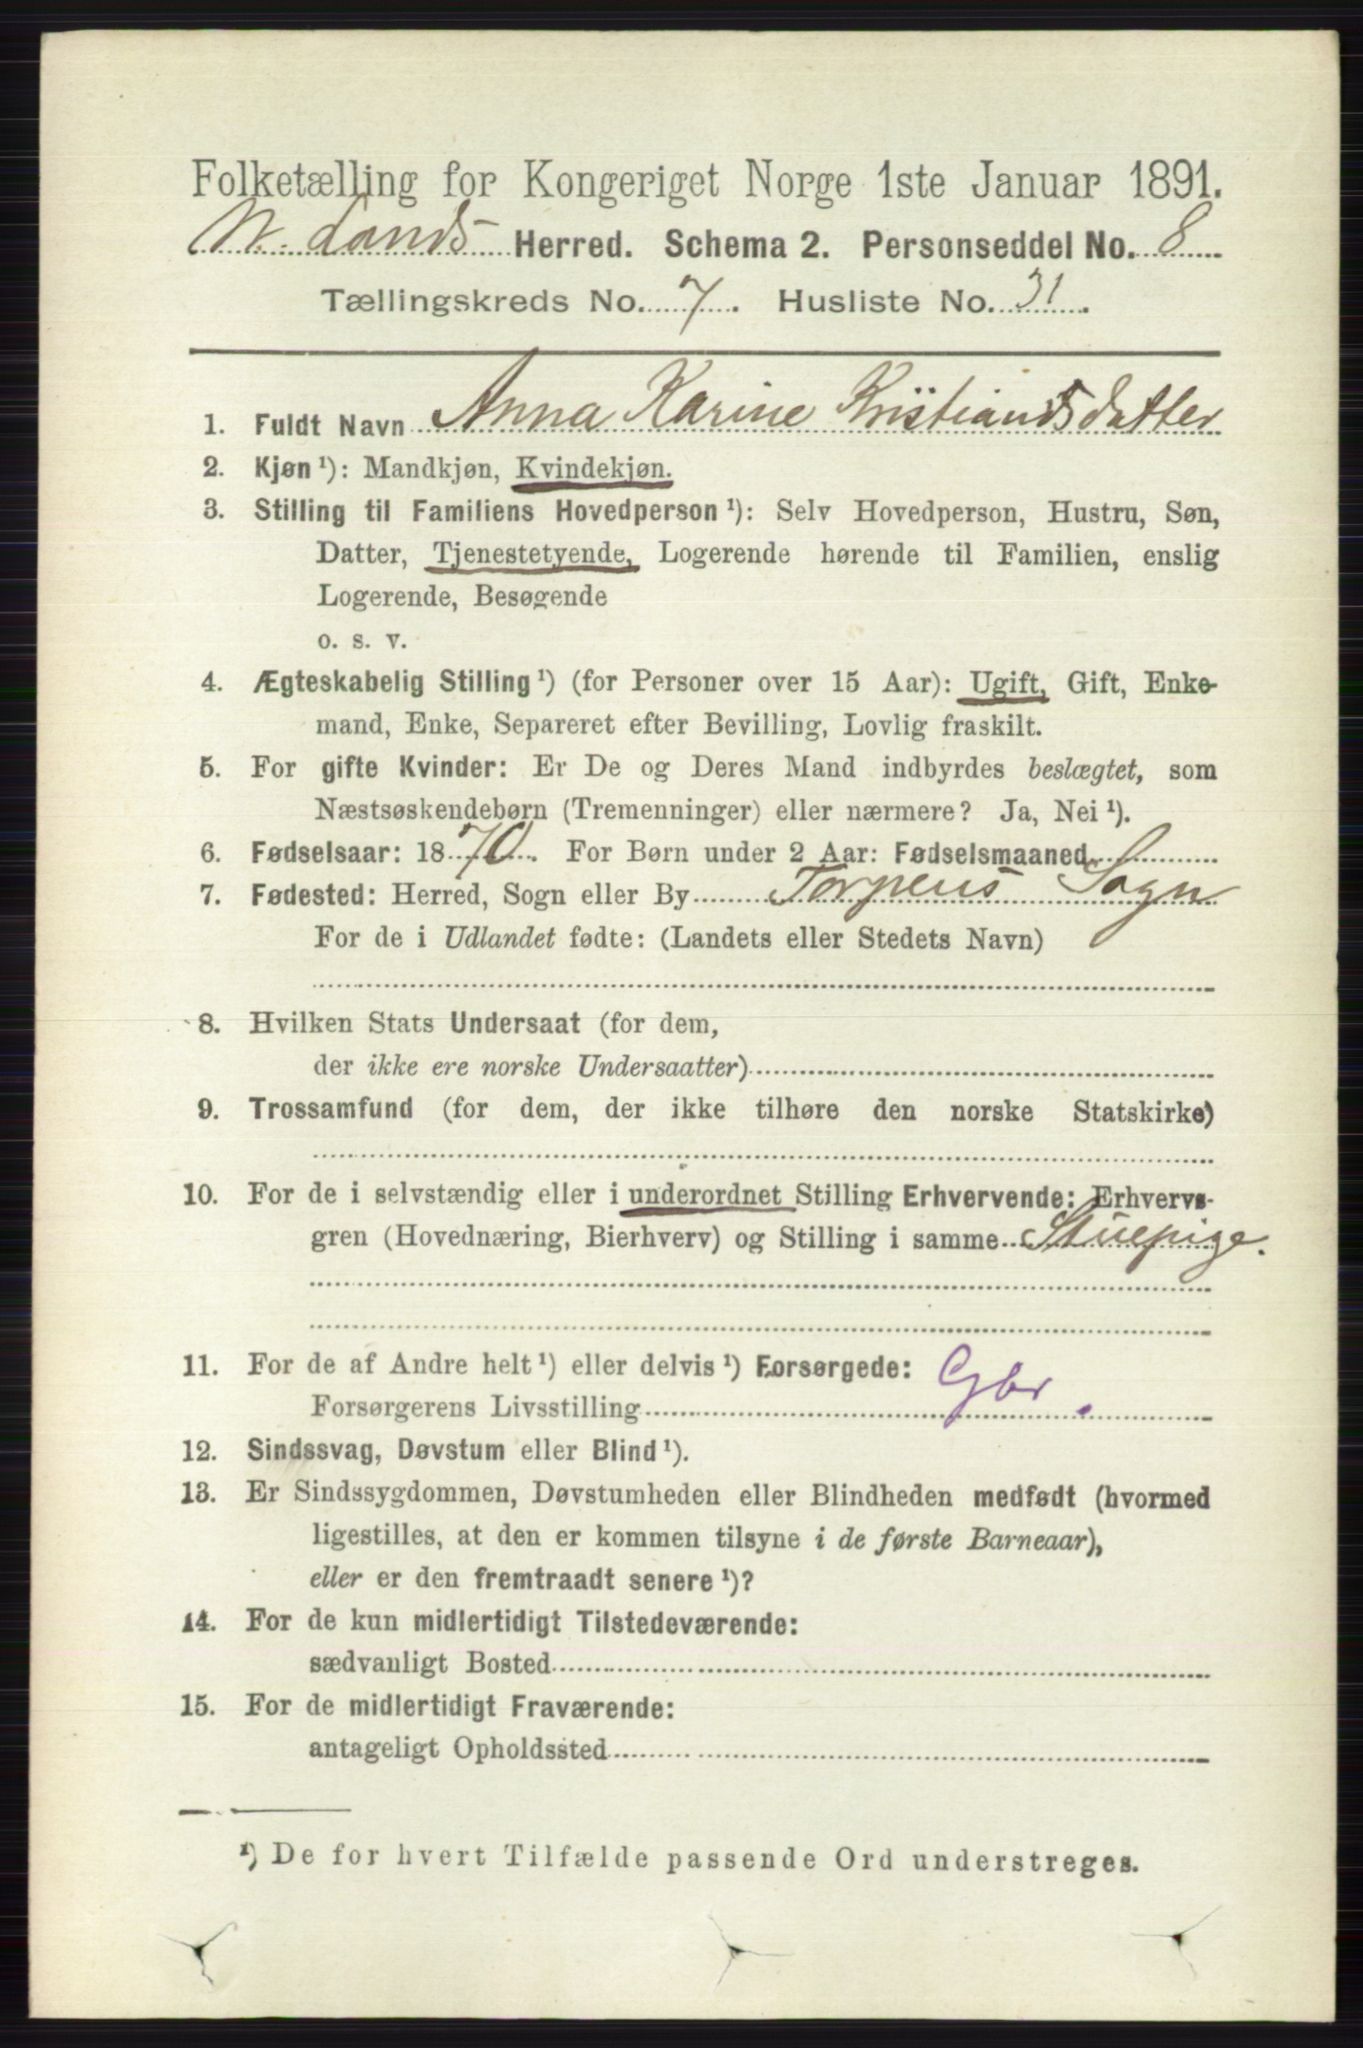 Folketælling for Kongeriget Norge 1ste Januar 1891.
N. Lands Herred. Schema 2. Personseddel No. 8
Tællingskreds No. 7. Husliste No. 31.
1. Fuldt Navn Anna Karine Kristiansdatter
2. Kjøn¹): Mandkjøn, Kvindekjøn.
3. Stilling til Familiens Hovedperson¹): Selv Hovedperson, Hustru, Søn,
Datter, Tjenestetyende, Logerende hørende til Familien, enslig
Logerende, Besøgende
o. s. v.
4. Ægteskabelig Stilling¹) (for Personer over 15 Aar): Ugift, Gift, Enke-
mand, Enke, Separeret efter Bevilling, Lovlig fraskilt.
5. For gifte Kvinder: Er De og Deres Mand indbyrdes beslægtet, som
Næstsøskendebørn (Tremenninger) eller nærmere? Ja, Nei¹).
6. Fødselsaar: 1870. For Børn under 2 Aar: Fødselsmaaned
7. Fødested: Herred, Sogn eller By Torpens Sogn
For de i Udlandet fødte: (Landets eller Stedets Navn)
8. Hvilken Stats Undersaat (for dem,
der ikke ere norske Undersaatter)
9. Trossamfund (for dem, der ikke tilhøre den norske Statskirke)
10. For de i selvstændig eller i underordnet Stilling Erhvervende: Erhvervs-
gren (Hovednæring, Bierhverv) og Stilling i samme Stuepige.
11. For de af Andre helt¹) eller delvis¹) Forsørgede: Gbr.
Forsørgerens Livsstilling
12. Sindssvag, Døvstum eller Blind¹).
13. Er Sindssygdommen, Døvstumheden eller Blindheden medfødt (hvormed
ligestilles, at den er kommen tilsyne i de første Barneaar),
eller er den fremtraadt senere¹)?
14. For de kun midlertidigt Tilstedeværende:
sædvanligt Bosted
15. For de midlertidigt Fraværende:
antageligt Opholdssted
¹) De for hvert Tilfælde passende Ord understreges.